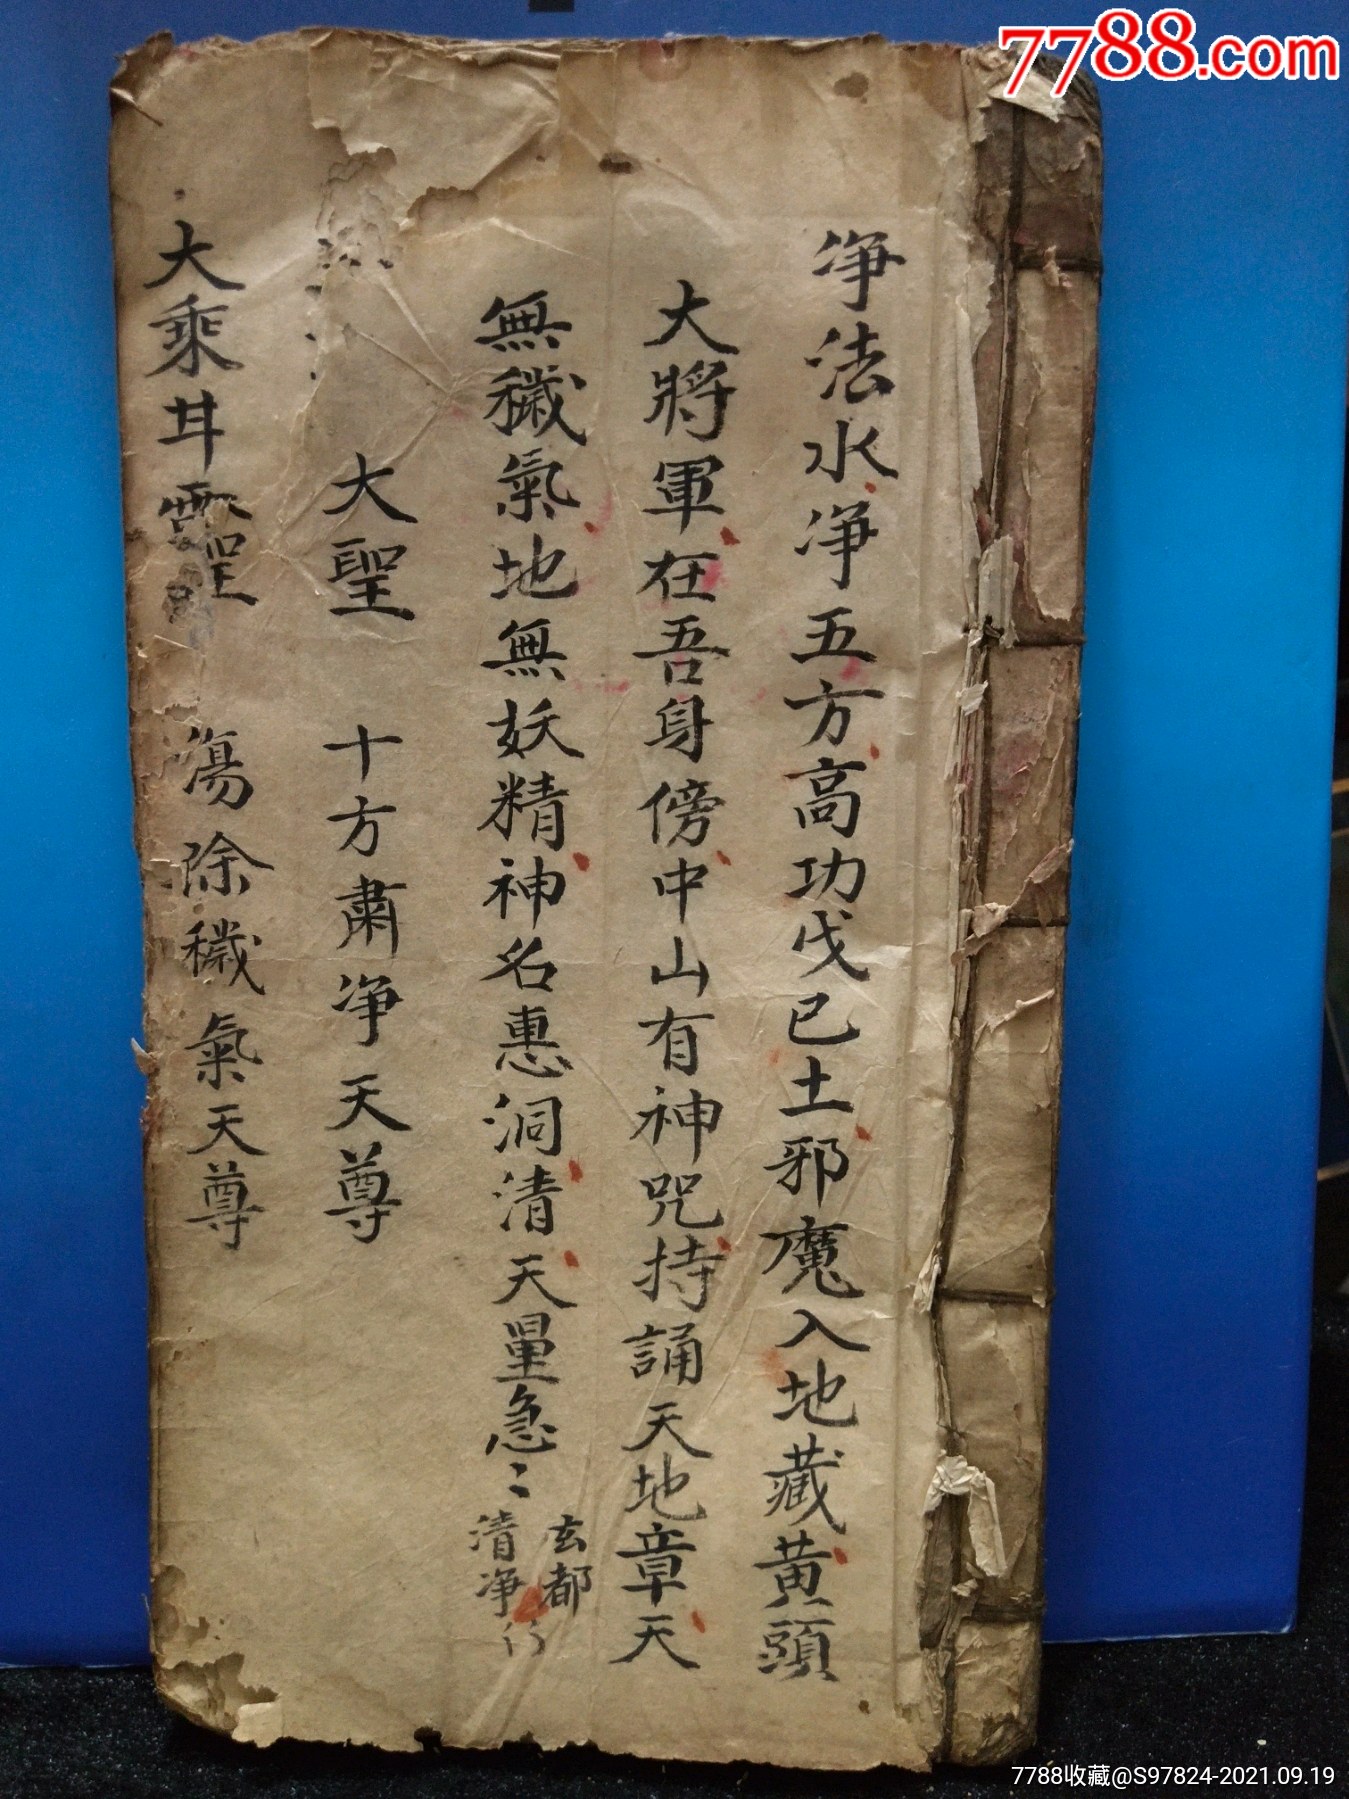 7788.com
净法水净五方高功戊己土邪魔入地藏黄頭
大將軍在吾身傍中山有神咒持誦天地章天
無穢氣地無妖精神名惠洞清天量急〻
玄都
清净
大聖 十方肅净天尊
大乘 蕩除穢氣天尊
7788收藏@S97824-2021.09.19